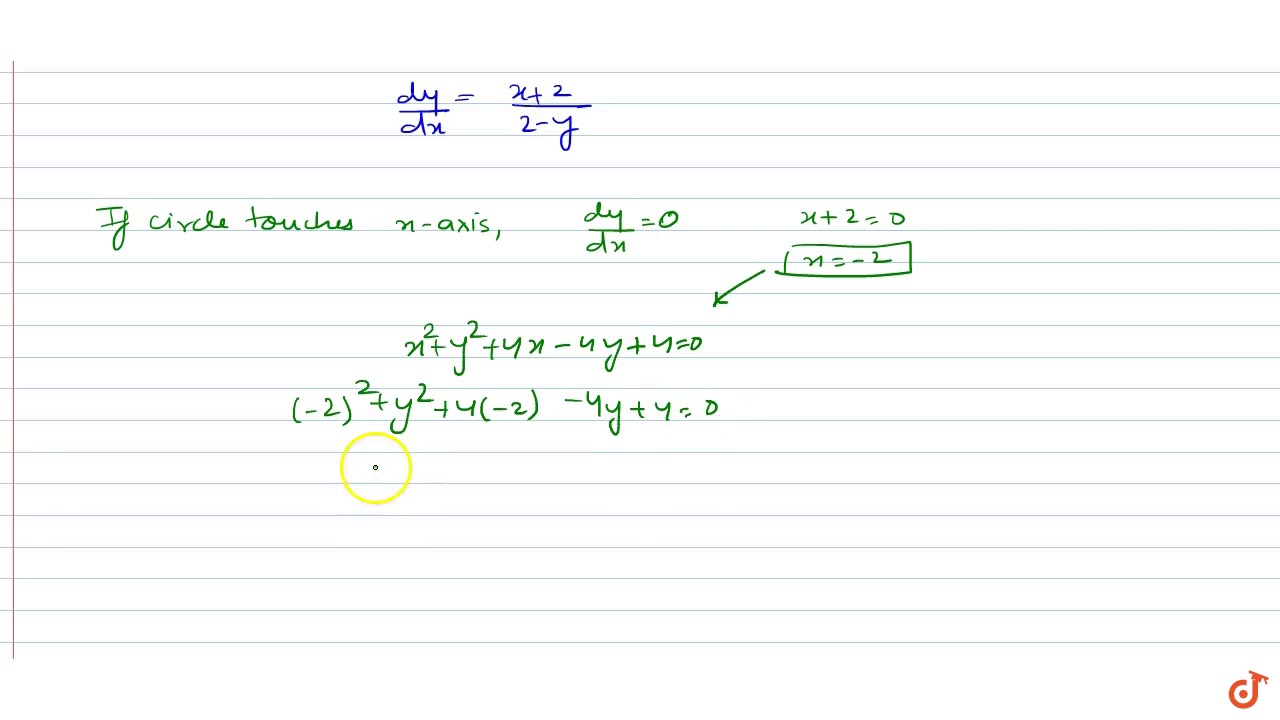 dy/dx = x+2/2-y
If circle touches x-axis, dy/dx = 0 x+2=0
x=-2
x²+y²+4x-4y+4=0
(-2)²+y²+4(-2) -4y+4=0